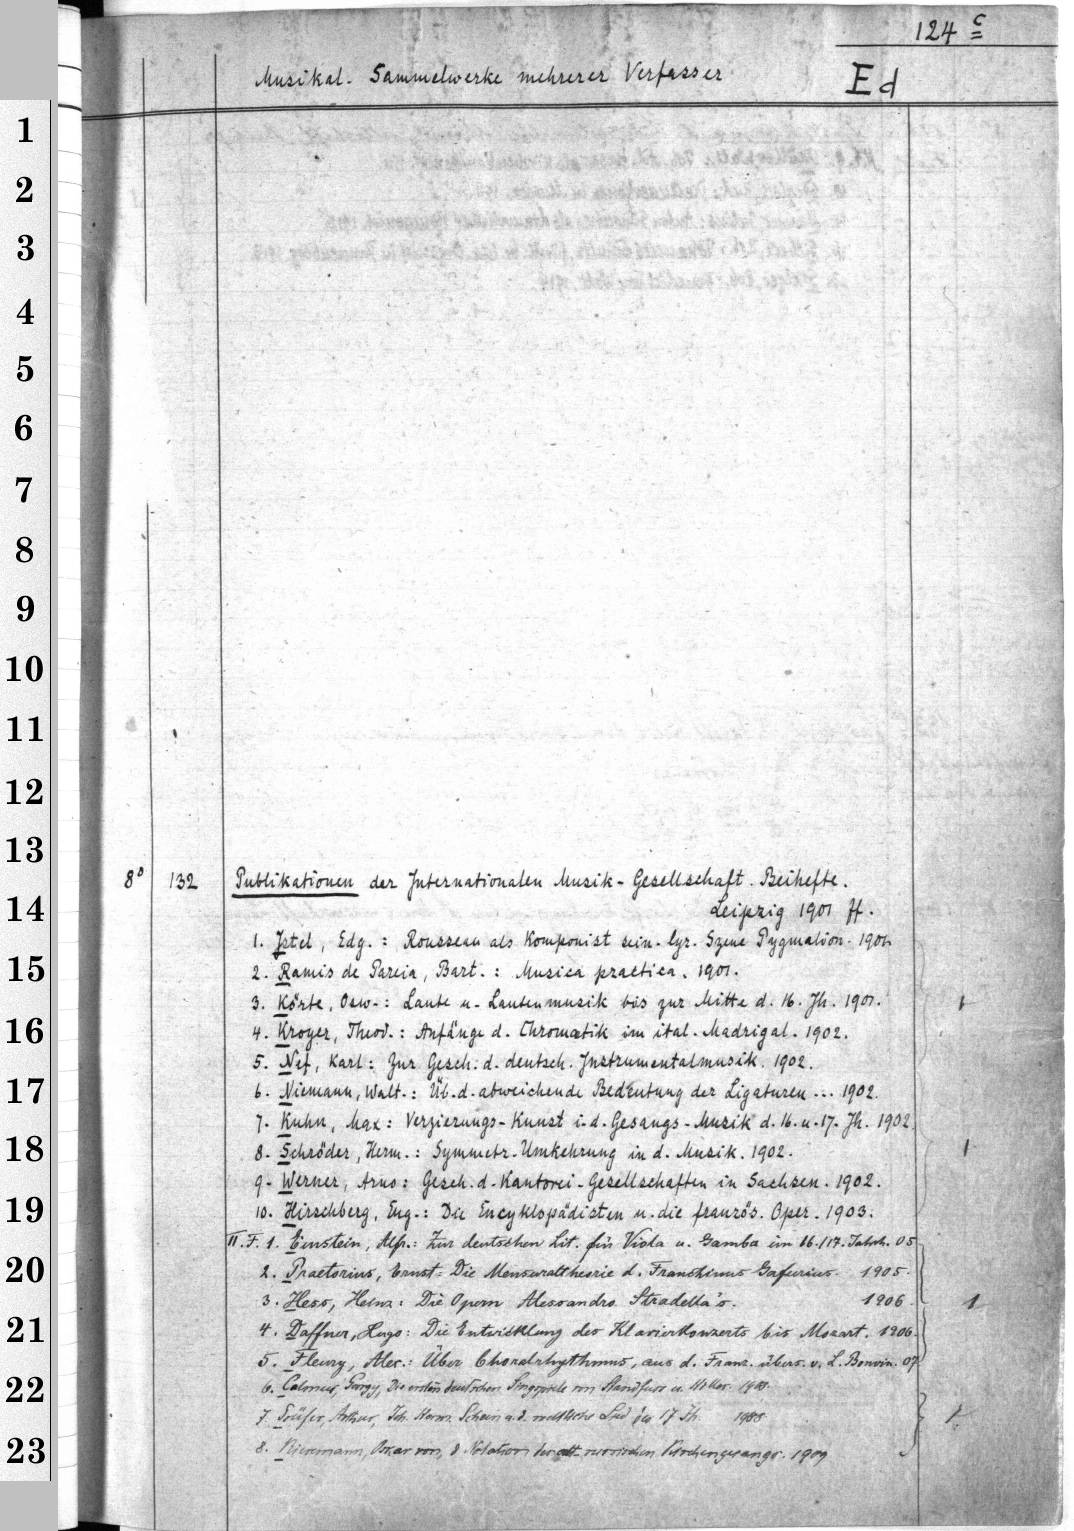 124 c
Musikal. Sammelwerke mehrerer Verfasser
Ed
1
2
3
4
5
6
7
8
9
10
11
12
13
8° 132 Publikationen der Internationalen Musik-Gesellschaft. Beihefte.
14
Leipzig 1901 ff.
1. Istel, Edg.: Rousseau als Komponist sein. lyr. Szene Pygmalion. 1901.
15
2. Ramis de Pareia, Bart.: Musica practica. 1901.
3. Körte, Osw.: Laute u. Lautenmusik bis zur Mitte d. 16. Jh. 1901. 1
16
4. Kroyer, Theod.: Anfänge d. Chromatik im ital. Madrigal. 1902.
5. Nef, Karl: Zur Gesch. d. deutsch. Instrumentalmusik. 1902.
17
6. Niemann, Walt.: Üb. d. abweichende Bedeutung der Ligaturen ... 1902.
7. Kuhn, Max: Verzierungs-Kunst i. d. Gesangs-Musik d. 16. u. 17. Jh. 1902.
18
8. Schröder, Herm.: Symmetr. Umkehrung in d. Musik. 1902. 1
9. Werner, Arno: Gesch. d. Kantorei-Gesellschaften in Sachsen. 1902.
19
10. Hirschberg, Eug.: Die Encyklopädisten u. die französ. Oper. 1903.
II. F. 1. Einstein, Alfr.: Zur deutschen Lit. für Viola u. Gamba im 16./17. Jahrh. 05
20
2. Praetorius, Ernst: Die Mensuraltheorie d. Franchinus Gafurius. 1905.
3. Hess, Heinz: Die Opern Alessandro Stradella's. 1906. 1
21
4. Daffner, Hugo: Die Entwicklung des Klavierkonzerts bis Mozart. 1906.
5. Fleury, Alex.: Über Choralrhythmus, aus d. Franz. übers. v. L. Bonvin. 07
22
6. Calmus, Georgy, Die ersten deutschen Singspiele von Standfuss u. Hiller. 1908.
7. Prüfer, Arthur, Joh. Herm. Schein u. d. weltliche Lied des 17 Jh.
23
8. Riesemann, Oskar von, d Notation des alt-russischen Kirchengesangs. 1909